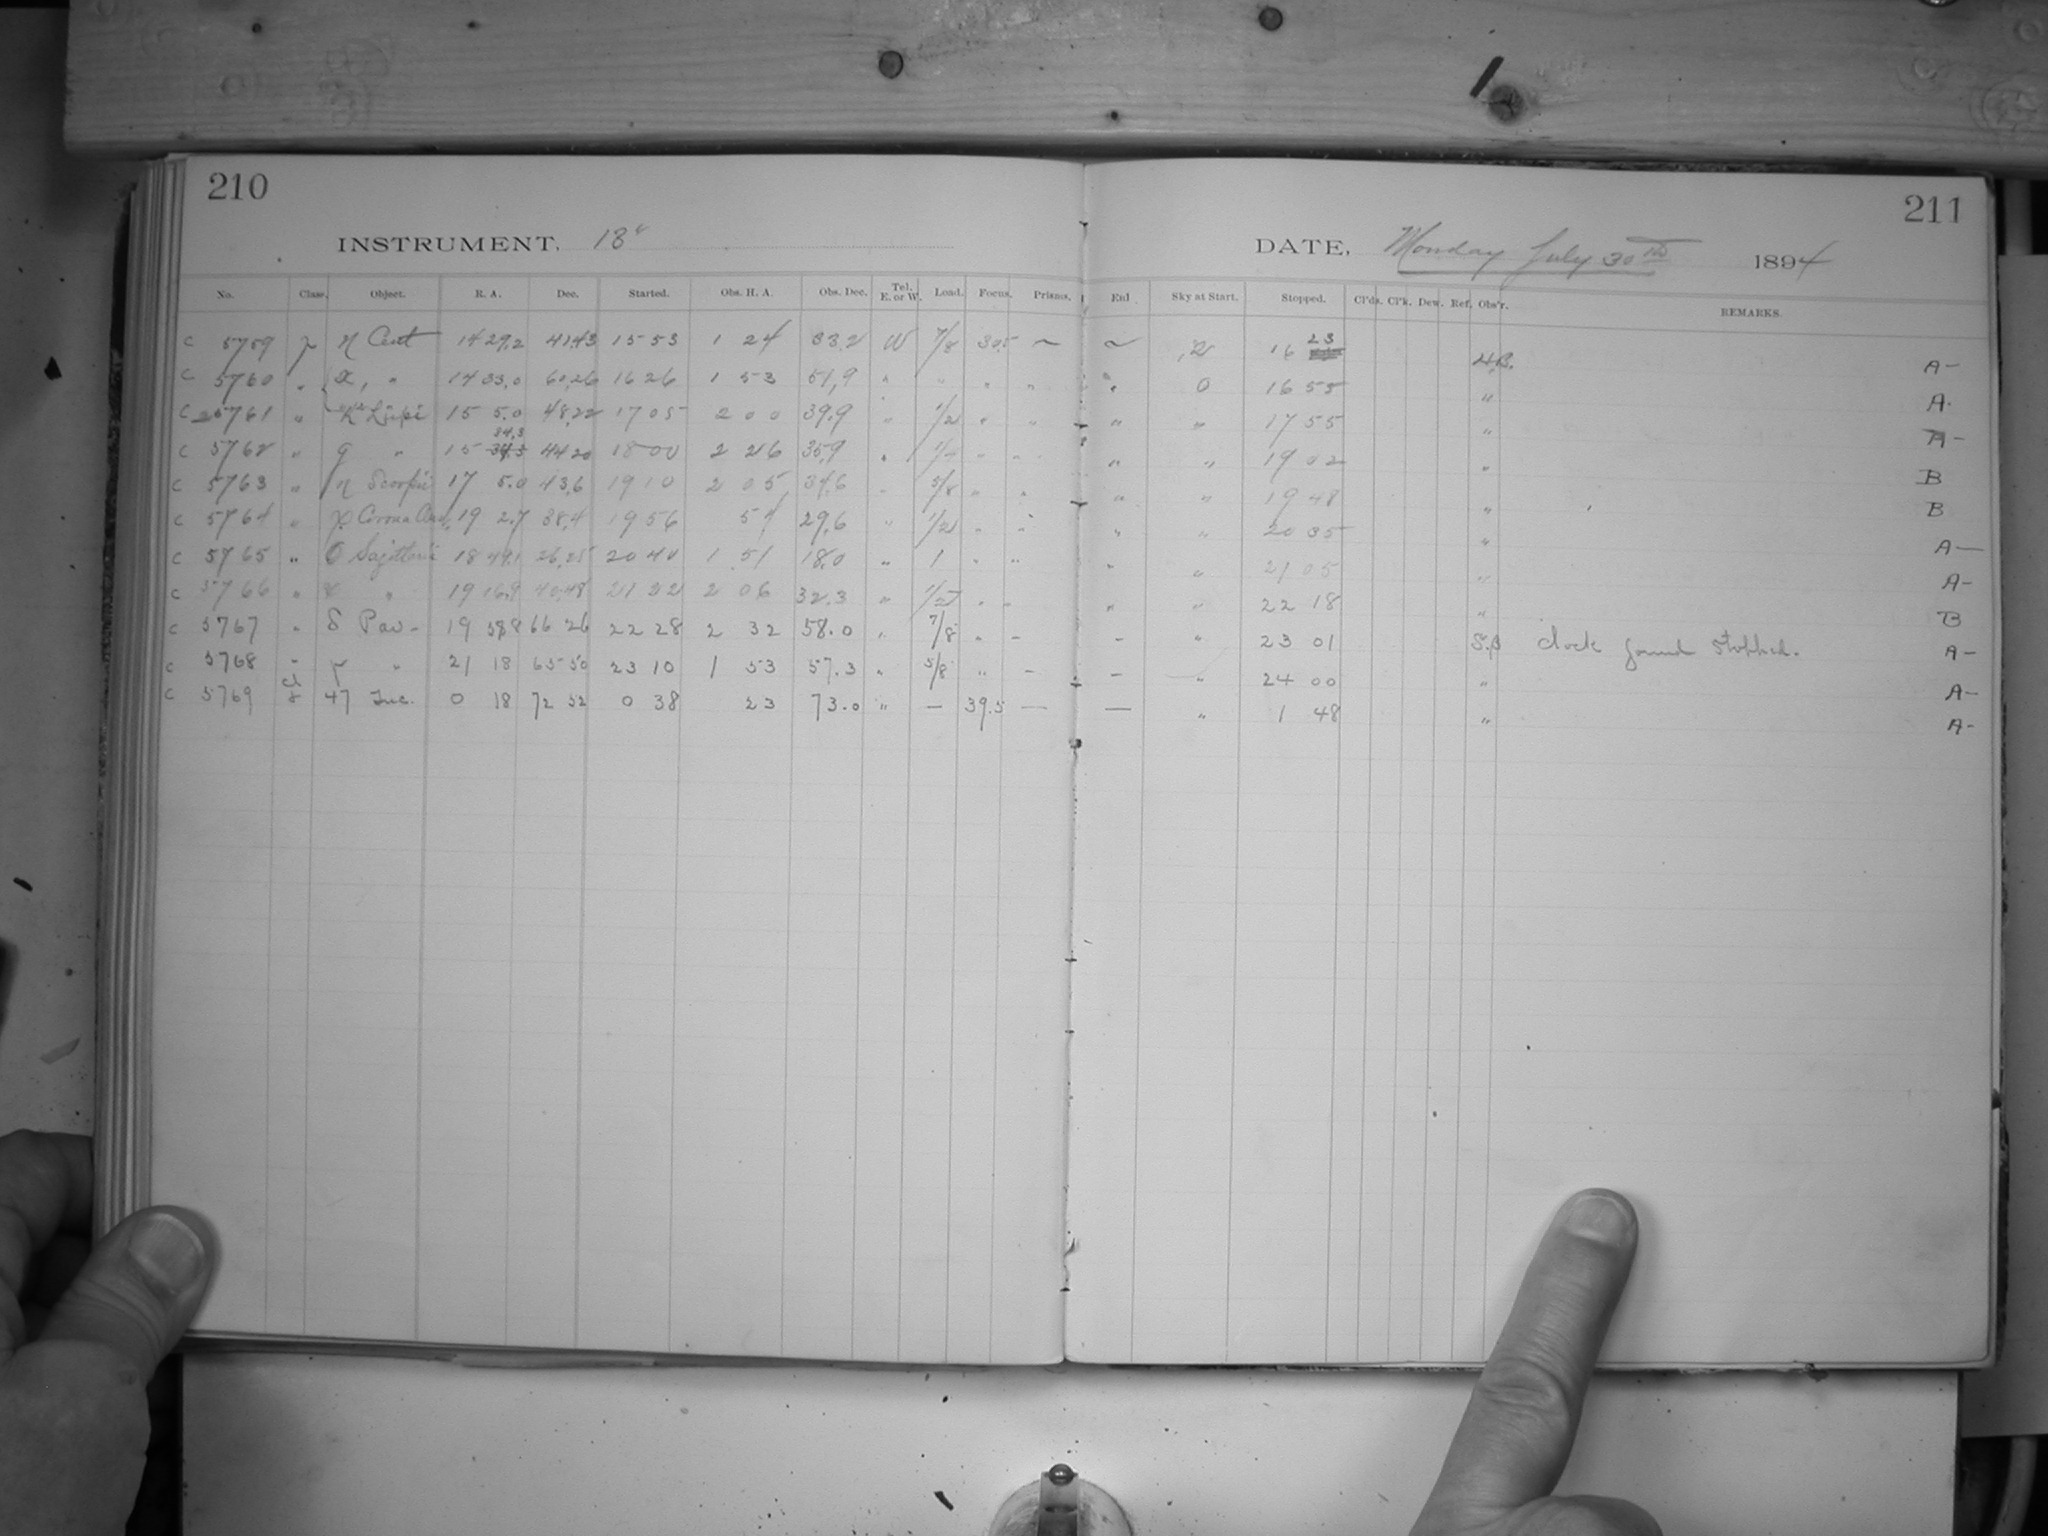 210
211
INSTRUMENT, 18"
DATE, Monday July 30th 1894
No. Class. Object. R. A. Dec. Started. Obs. H. A. Obs. Dec. Tel. E. or W. Load. Focus. Prisms. End Sky at Start. Stopped. Cl'ds. Cl'k. Dew. Ref. Obs'r. REMARKS.
C 5759 p η Cent 14 29.2 41,43 15 53 1 24 33.2 W 7/8 39.5 ~ ~ 16 23 H.B. A-
C 5760 " α, " 14 33.0 60,26 16 26 1 53 51,9 " " " " " 0 16 55 " A-
C 5761 " K² Lupi 15 5.0 48,22 17 05 2 00 39.9 " 1/2 " " " " 17 55 " A-
C 5762 " g " 15 34.3 44 20 18 00 2 26 35,9 " 1/2 " " " " 19 02 " B
C 5763 " η Scorpii 17 5.0 43,6 19 10 2 05 34.6 " 5/8 " " " " 19 48 " B
C 5764 " Corona Aus. 19 2.7 38,4 19 56 54 29,6 " 1/2 " " " " 20 35 " A-
C 5765 " O Sagittarii 18 49.1 26,25 20 40 1 51 18,0 " 1 " " " " 21 05 " A-
C 5766 " " 19 16.9 40,48 21 22 2 06 32.3 " 1/2 " " " " 22 18 " B
C 5767 " δ Pav- 19 58.8 66 26 22 28 2 32 58.0 " 7/8 " - - " 23 01 S.B clock found stopped. A-
C 5768 " γ " 21 18 65 50 23 10 1 53 57.3 " 5/8 " - - " 24 00 " A-
C 5769 47 Tuc. 0 18 72 52 0 38 23 73.0 " - 39.5 - - " 1 48 " A-